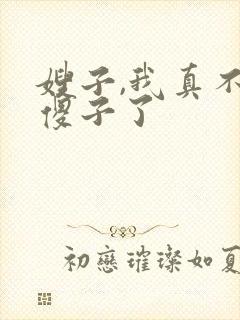 嫂子,我真不
傻子了
初戀璀璨如夏